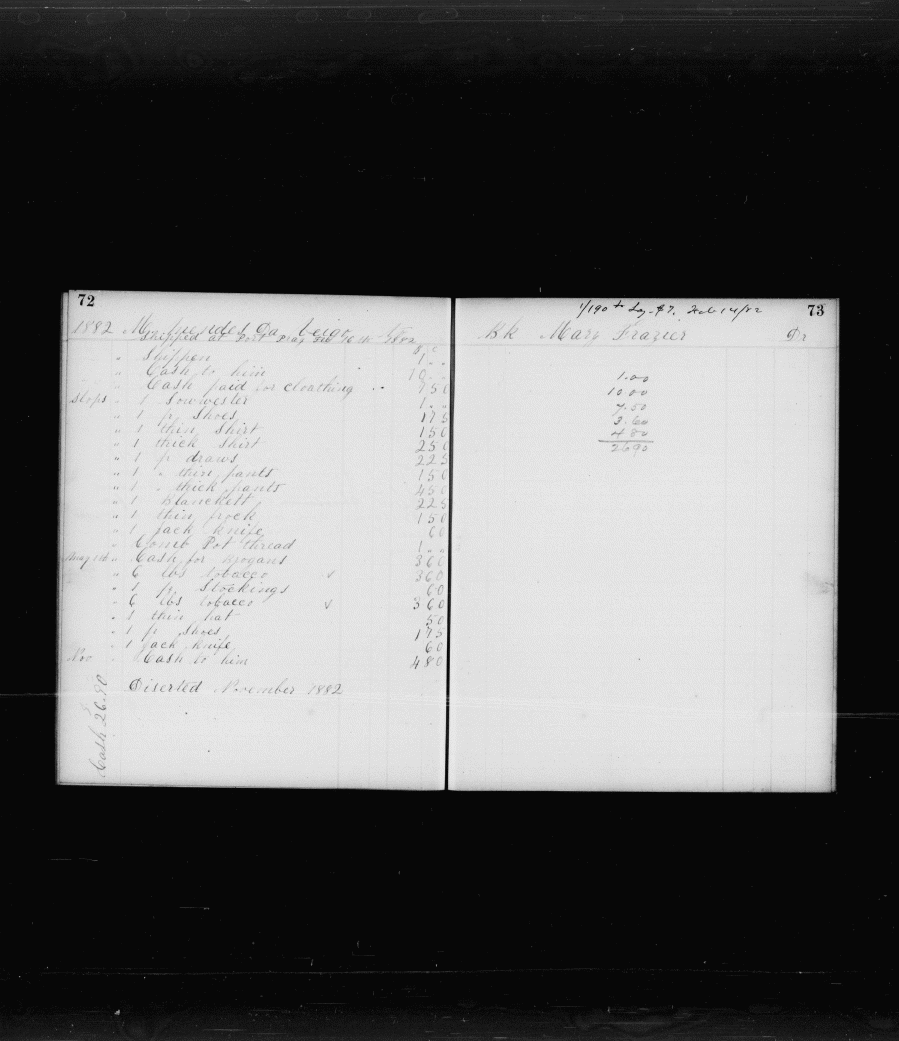 72
1882 M
Shipped at Port Pray 1882
" Shippen 1 " "
" Cash to him 10 " "
" Cash paid for cloathing " " 7 50
Slops " 1 Sowwester 1 " "
" 1 pr Shoes 1 75
" 1 thin Shirt 1 50
" 1 thick Shirt 2 50
" 1 pr draws 2 25
" 1 " thin pants 1 50
" 1 " thick pants 4 50
" 1 Blanckett 2 25
" 1 thin frock 1 50
" 1 jack knife 60
" Comb Pot thread 1 " "
" Cash for brogans 3 60
" 6 lbs tobacco √ 3 60
" 1 pr Stockings 60
" 6 lbs tobacco √ 3 60
" 1 thin hat 50
" 1 pr Shoes 1 75
" 1 jack knife 60
Nov " Cash to him 4 80
Diserted November 1882
Cash 26.90
73
1/190th Lay $7. Feb 14/82
Bk Mary Frazier Dr
1.00
10.00
7.50
3.60
4 80
26 90